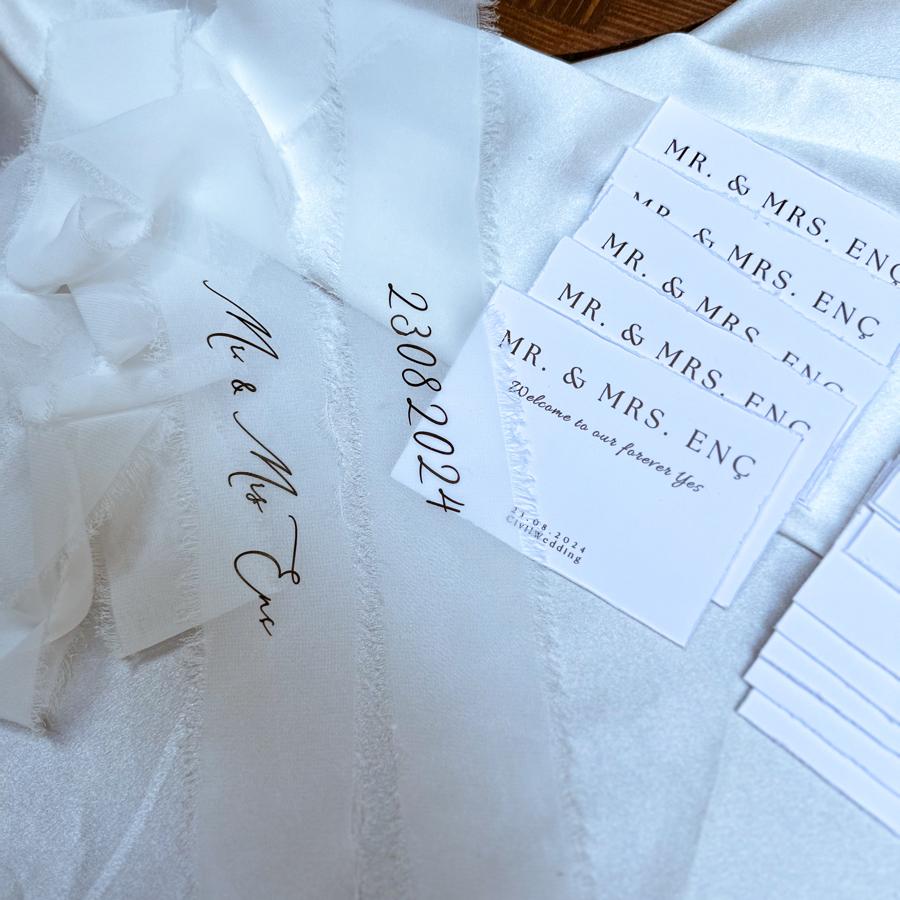 Mr & Mrs Enç
23082024
MR. & MRS. ENÇ
MR. & MRS. ENÇ
MR. & MRS. ENÇ
MR. & MRS. ENÇ
MR. & MRS. ENÇ
Welcome to our forever Yes
23.08.2024
CivilWedding